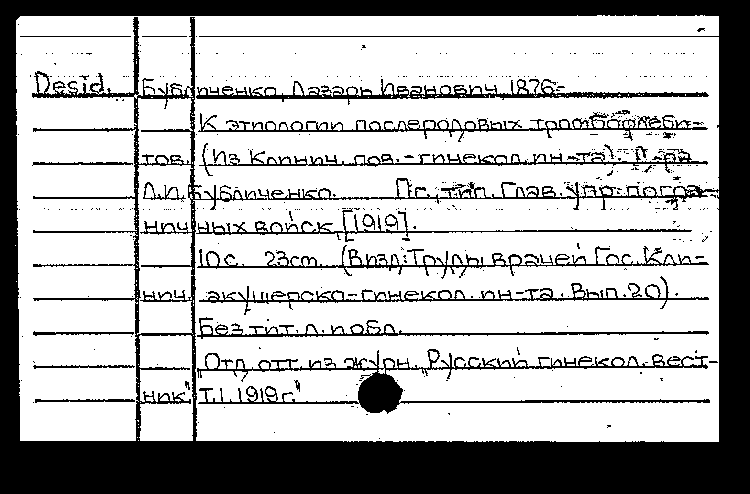 Desid. Бубличенко, Лазарь Иванович, 1876-
К этиологии послеродовых тромбофлеби-
тов. (Из Клинич. пов.-гинекол. ин-та). Д-ра
Л.И. Бубличенко. Пг., тип. Глав. упр. погра-
ничных войск, [1919].
10 с. 23 cm. (В изд.: Труды врачей Гос. Кли-
нич. акушерско-гинекол. ин-та. Вып. 20).
Без тит. л. и обл.
„Отд. отт. из журн. „Русский гинекол. вест-
ник" Т.I. 1919 г."